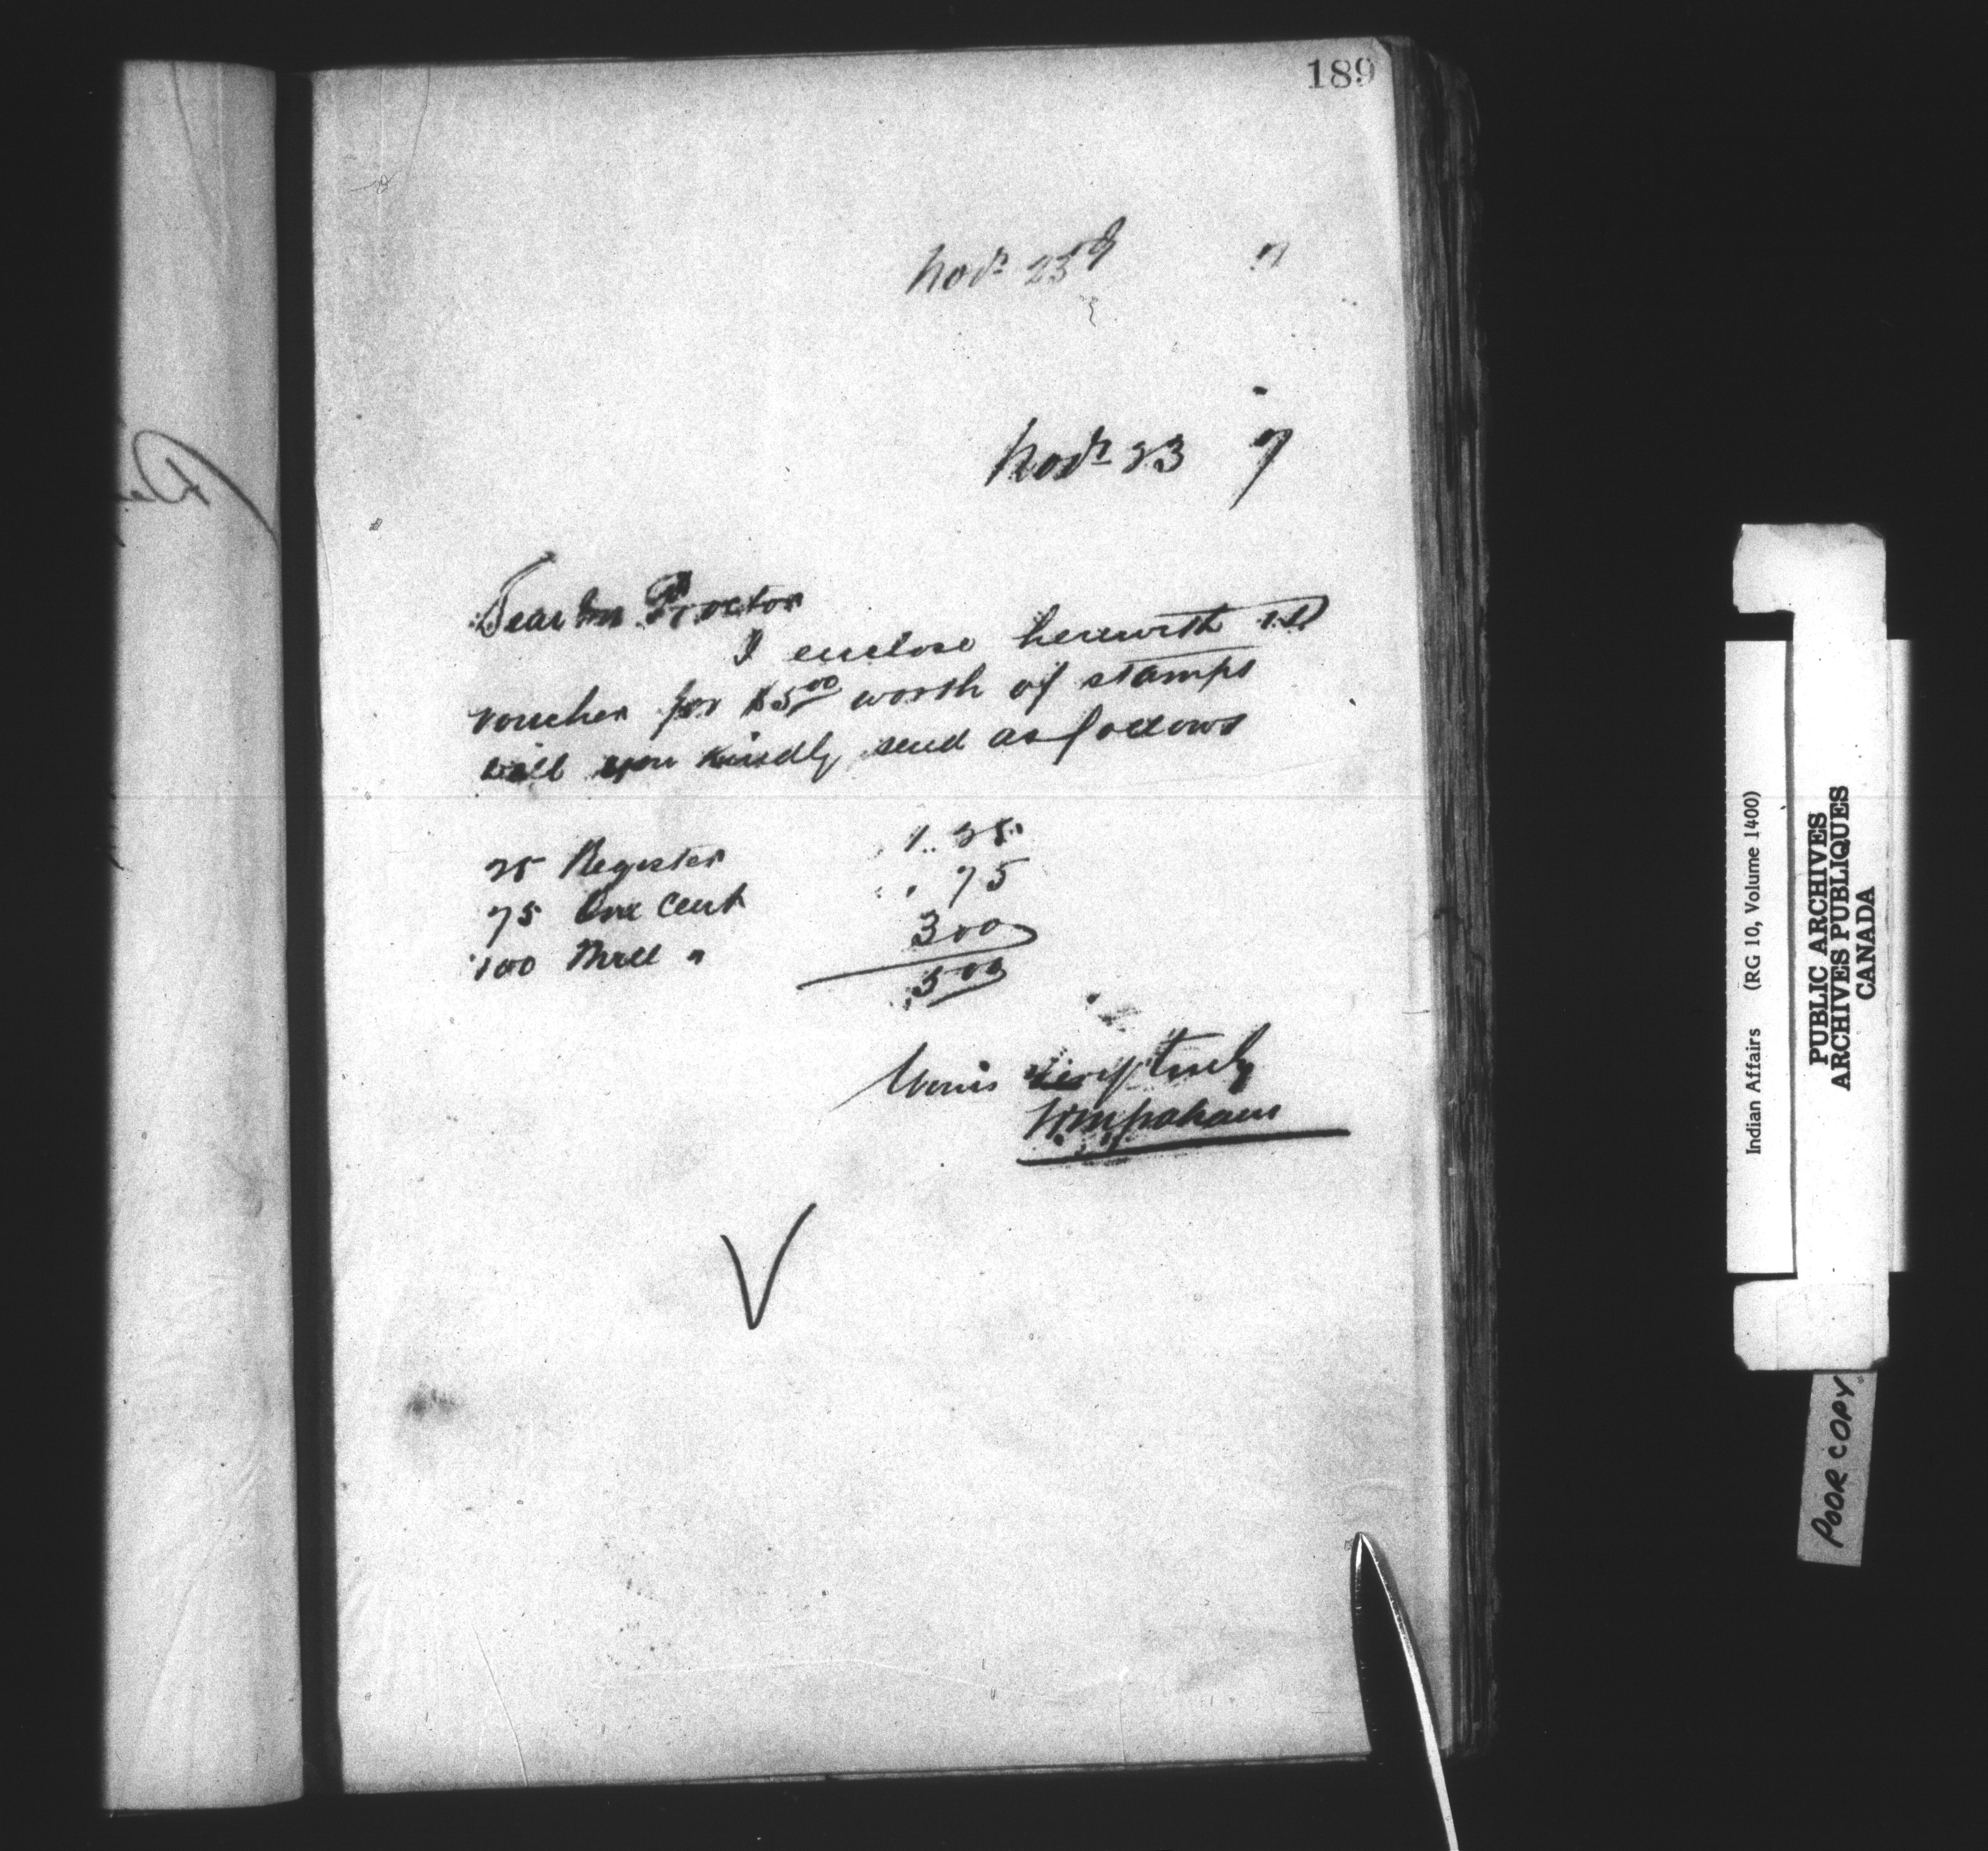 189
Novr 23rd 7
Novr 23 7
Dear Mr Proctor
I enclose herewith
voucher for $5.00 worth of stamps
will you kindly send as follows
25 Register 1.25
75 One Cent .75
100 Three " 3 00
5 00
Yours very truly
W. M. Graham
Indian Affairs (RG 10, Volume 1400)
PUBLIC ARCHIVES
ARCHIVES PUBLIQUES
CANADA
POOR COPY